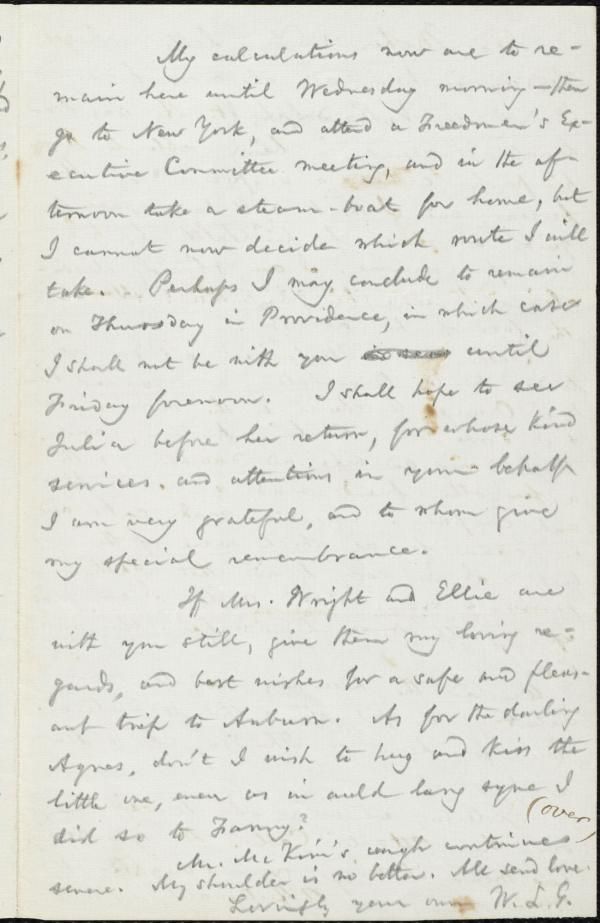 My calculations now are to re-
main here until Wednesday morning—then
go to New York, and attend a Freedmen's Ex-
ecutive Committee meeting, and in the af-
ternoon take a steam-boat for home, but
I cannot now decide which route I will
take. Perhaps I may conclude to remain
on Thursday in Providence, in which case
I shall not be with you until
Friday forenoon. I shall hope to see
Julia before her return, for whose kind
services and attentions in your behalf
I am very grateful, and to whom give
my special remembrance.
If Mrs. Wright and Ellie are
with you still, give them my loving re-
gards, and best wishes for a safe and pleas-
ant trip to Auburn. As for the darling
Agnes, don't I wish to hug and kiss the
little one, even as in auld lang syne I
did so to Fanny?
(over)
Mr. McKim's cough continues
severe. My shoulder is no better. All send love.
Lovingly your own W. L. G.